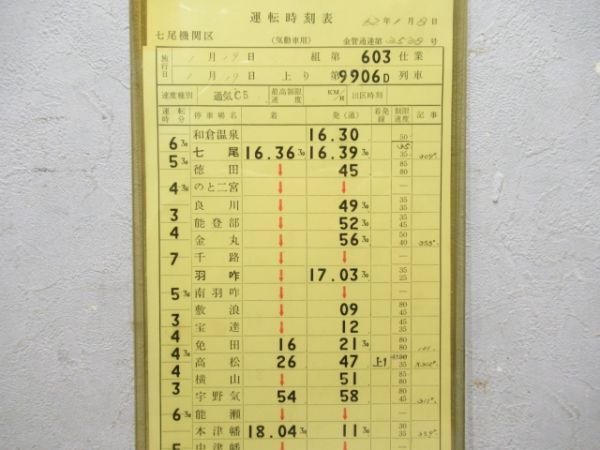 運転時刻表 62年1月8日
七尾機関区 (気動車用) 金管達第 号
施行日 1月17日 組 第603仕業
1月17日 上り 第9906D列車
速度種別 通気C5 最高制限速度 KM/H 出区時刻
運転時分 停車場名 着 発(通) 着発線 制限速度 記事
和倉温泉 16.30 50
6 30
七尾 16.36 30 16.39 30 35
5 30
徳田 ↓ 45 85 80
のと二宮 ↓ ↓ —
4 30
良川 ↓ 49 30 35 35
3
能登部 ↓ 52 30 35 45
4
金丸 ↓ 56 30 50 40
千路 ↓ ↓ —
7
羽咋 ↓ 17.03 30 35 25
南羽咋 ↓ ↓ —
5 30
敷浪 ↓ 09 80 45
3
宝達 ↓ 12 45 35
4
免田 16 21 30 80 80
4 30
高松 26 47 上1 35
4
横山 ↓ 51 85 80
3
宇野気 54 58 45 35
能瀬 ↓ ↓ —
6 30
本津幡 18.04 30 11 30 30 35
中津幡 ↓ ↓ —
5